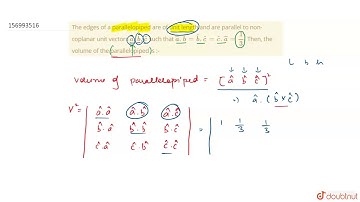 156993516
The edges of a parallelopiped are of unit length and are parallel to non-
coplanar unit vectors a, b, c such that a.b = b.c = c.a = 1/3. Then, the
volume of the parallelopiped is :-
l b h
volume of parallelopiped = [â b̂ ĉ]²
â.(b̂×ĉ)
V² = | â.â â.b̂ â.ĉ | = | 1 1/3 1/3
b̂.â b̂.b̂ b̂.ĉ
ĉ.â ĉ.b̂ ĉ.ĉ
doubtnut